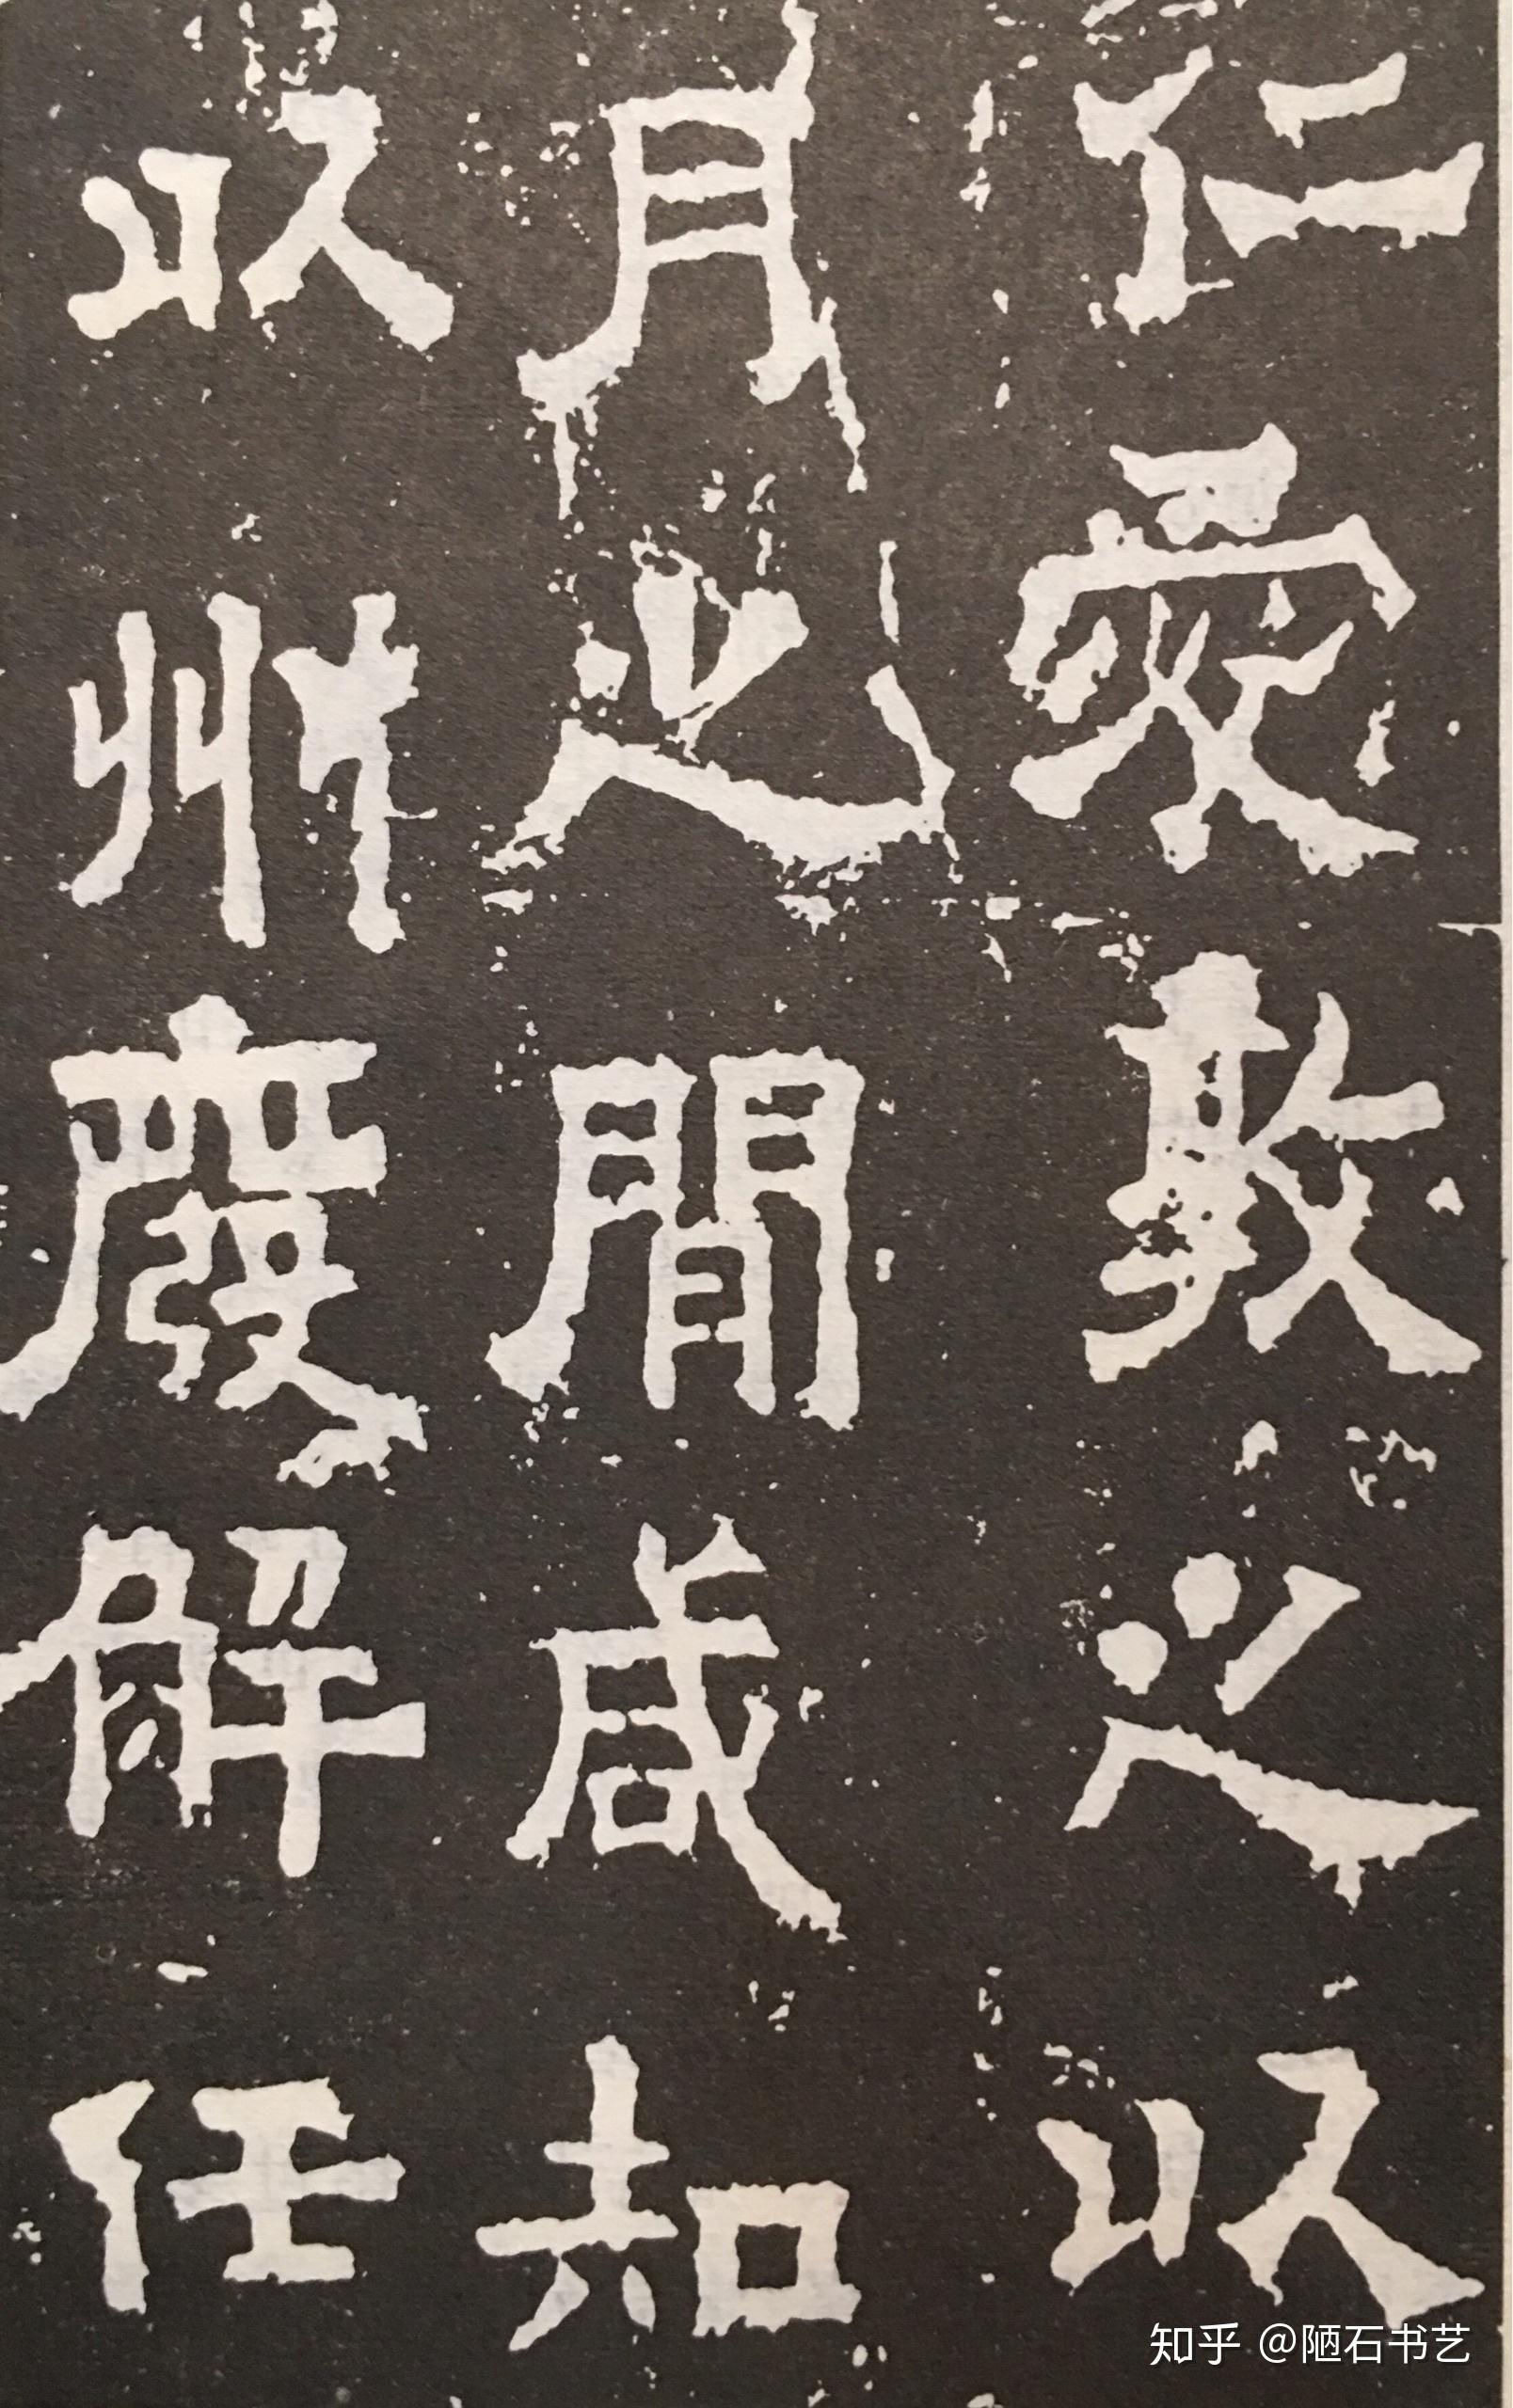 仁愛敦之以
月之間咸知
以州廢解任
知乎 @陋石书艺